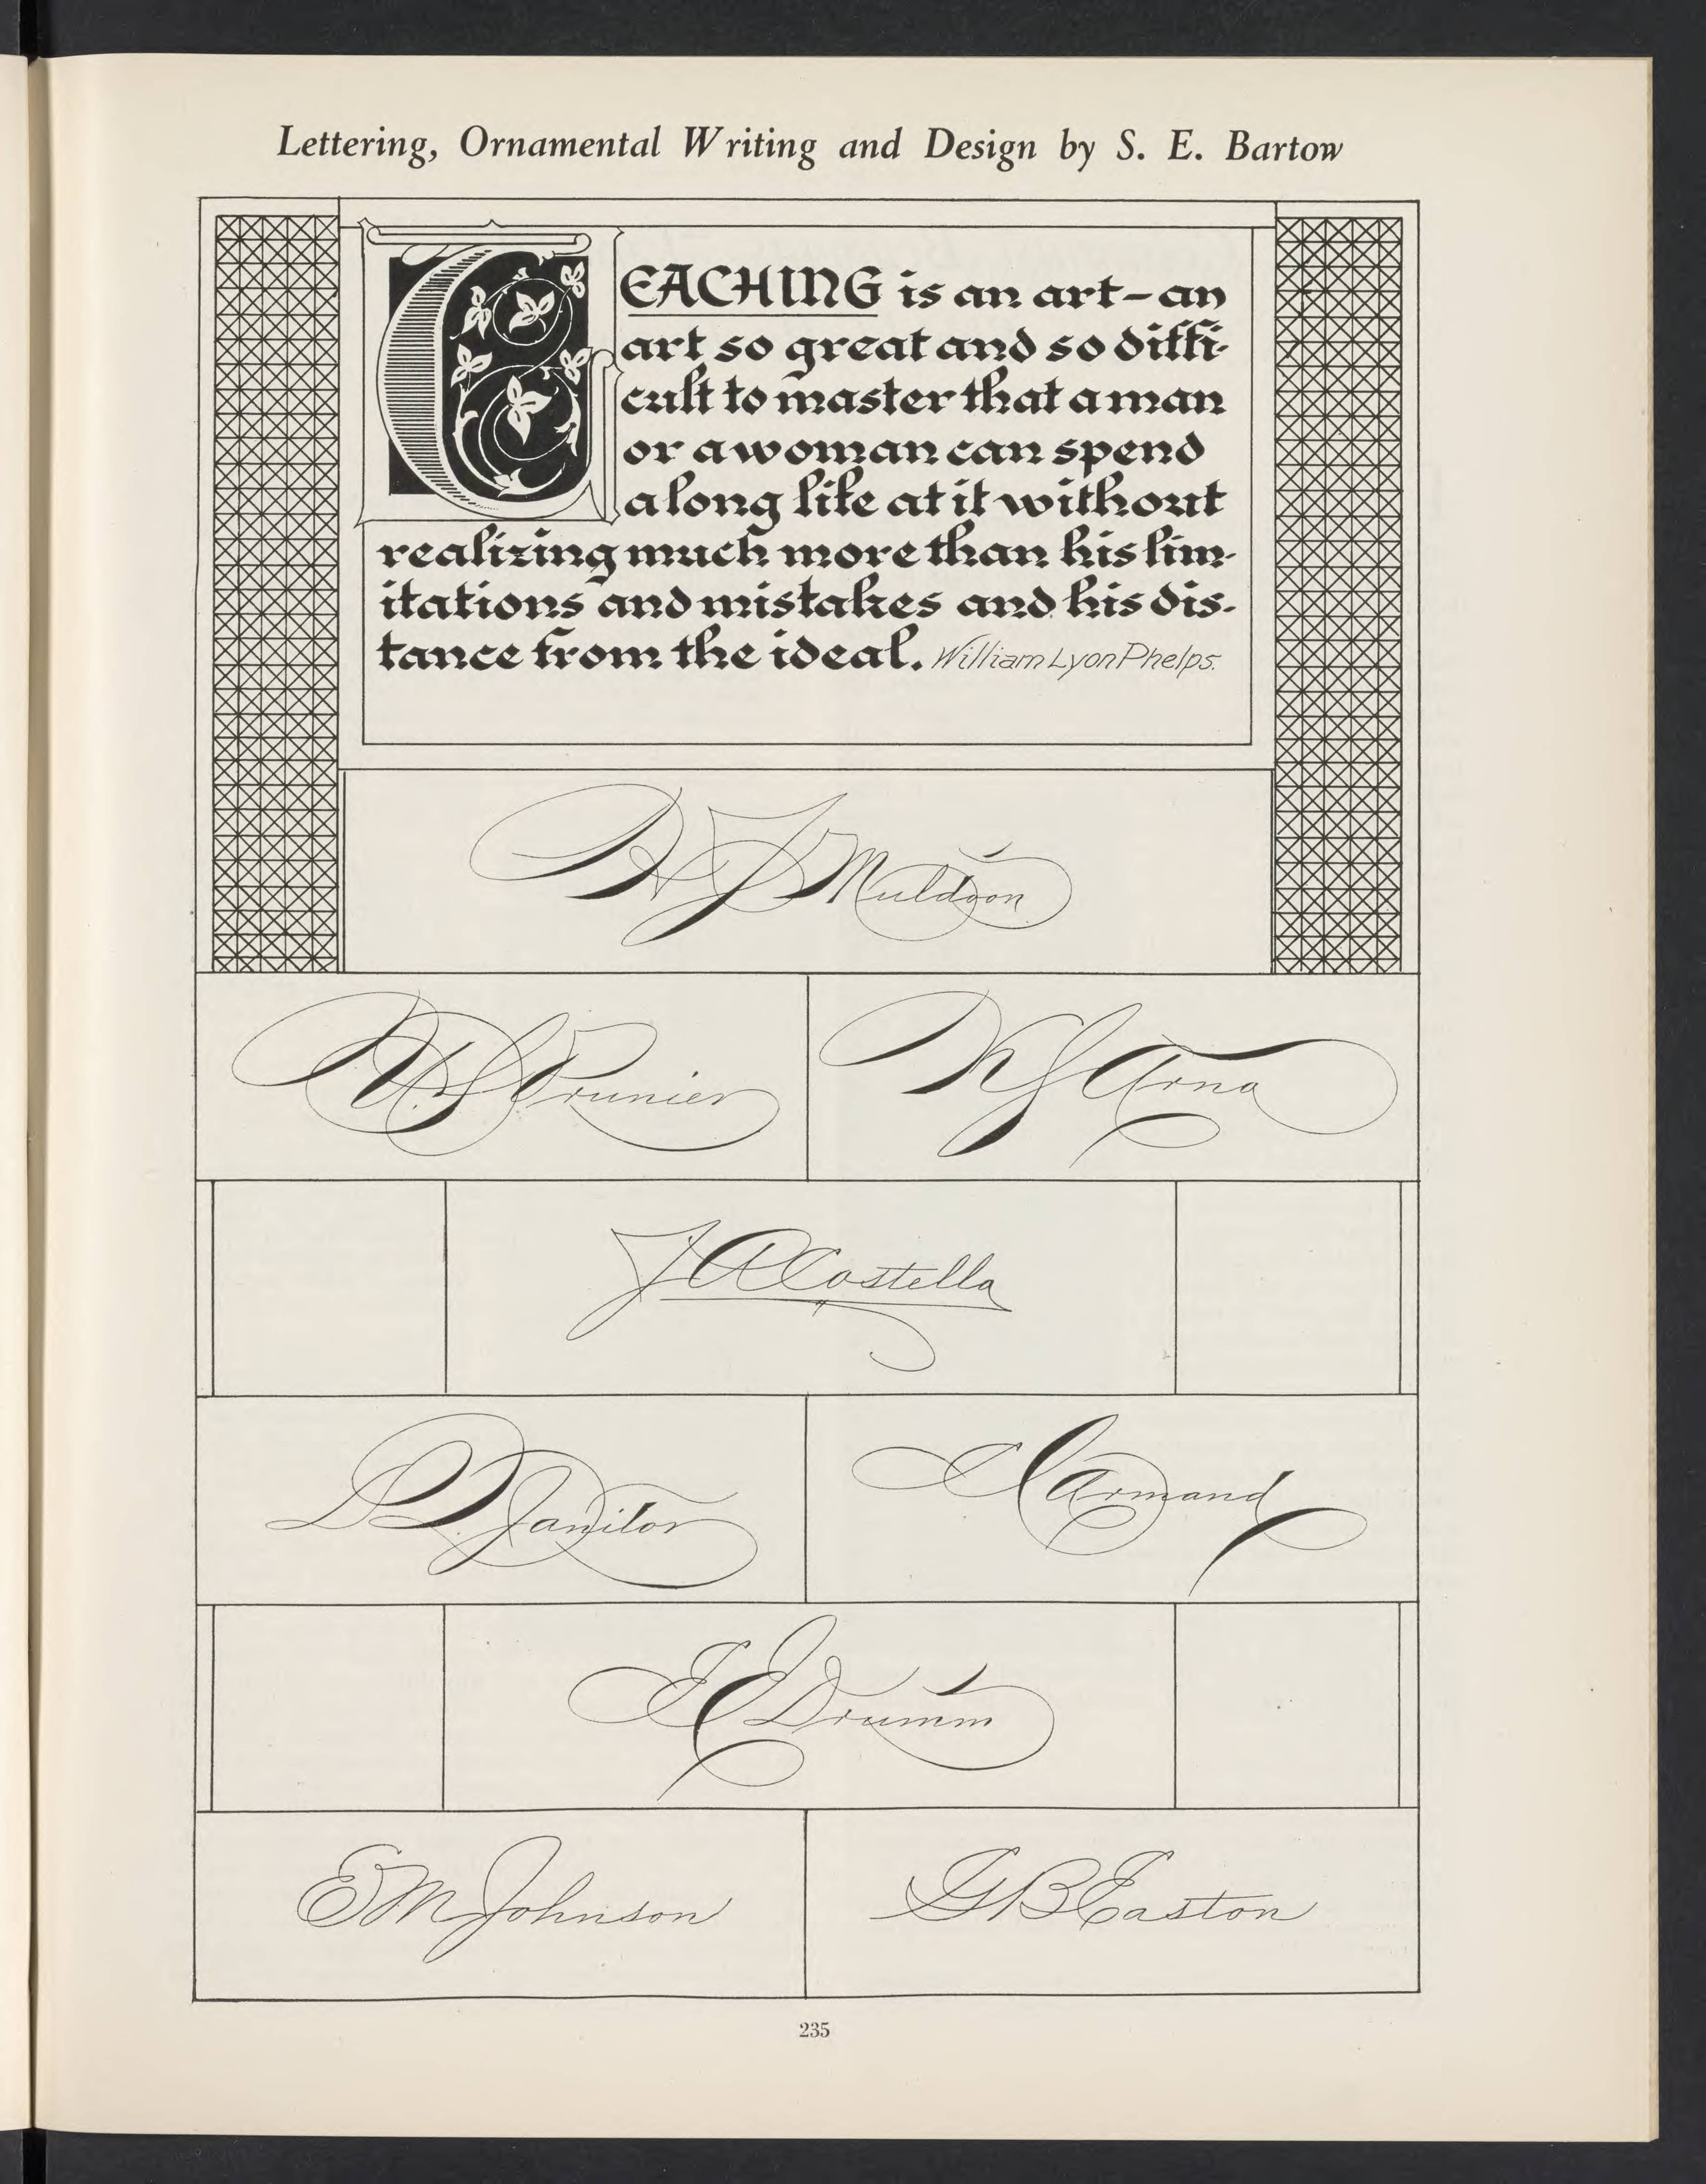 Lettering, Ornamental Writing and Design by S. E. Bartow
TEACHING is an art-an
art so great and so diffi-
cult to master that a man
or a woman can spend
a long life at it without
realizing much more than his lim-
itations and mistakes and his dis-
tance from the ideal. William Lyon Phelps.
Muldoon
Prunier
Arna
J A Costella
Janitor
Armand
Drumm
E M Johnson
G B Easton
235